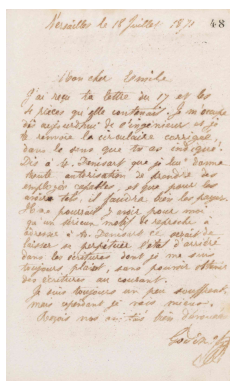 Versailles le 18 Juillet 1871
48
Mon cher Emile
J'ai reçu ta lettre du 17 et les
4 pièces qu'elle contenait. Je m'occupe
dès aujourd'hui de l'ingénieur et je
te renvoie la circulaire corrigée
dans le sens que tu as indiqué.
Dis à M. Denisart que je lui donne
toute autorisation de prendre des
employés capables, et que pour les
avoir tels, il faudra bien les payer.
Il ne pourrait y avoir pour moi
qu'un sérieux motif de reproche à
adresser à M. Denisart ce serait de
laisser en perpétuel état d'arriéré
dans les écritures dont je me suis
toujours plaint, sans pouvoir obtenir
des écritures au courant.
Je suis toujours un peu souffrant
mais cependant je vais mieux.
bien dévoués
Godin